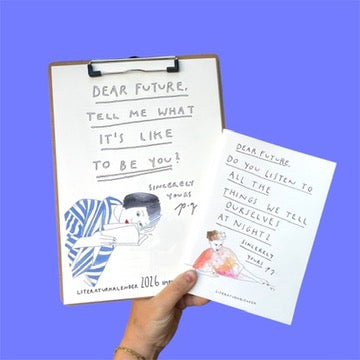 DEAR FUTURE,
TELL ME WHAT
IT'S LIKE
TO BE YOU?
SINCERELY
YOURS
p.z
LITERATURKALENDER 2026
DEAR FUTURE
DO YOU LISTEN TO
ALL THE
THINGS WE TELL
OURSELVES
AT NIGHT?
SINCERELY
YOURS
LITERATURKALENDER